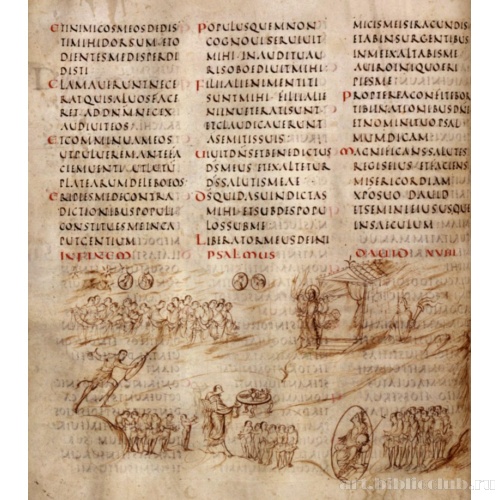 ETINIMICOSMEOSDEDIS
TIMIHIDORSUMETO
DIENTESMEDISPERDI
DISTI
CLAMAUERUNTNECE
RATQUISALUOSFACE
RETADDNMNECEX
AUDIUITEOS
ETCOMMINUAMEOS
UTPULUEREMANTEFA
CIEMUENTIUTLUTU
PLATEARUMDELEBOEOS
ERIPIESMEDECONTRA
DICTIONIBUSPOPULI
CONSTITUESMEINCA
PUTGENTIUM
INFINEM
POPULUSQUEMNON
COGNOUISERUIUIT
MIHIINAUDITUAU
RISOBOEDIUITMIHI
FILIIALIENIMENTITI
SUNTMIHIFILIIALIE
NIINUETERATISUNT
ETCLAUDICAUERUNT
ASEMITISSUIS
UIUITDNSETBENEDICTUS
DSMEUSETEXALTETUR
DSSALUTISMEAE
DSQUIDASUINDICTAS
MIHIETSUBDESPOPU
LOSSUBME
LIBERATORMEUSDEINI
PSALMUS
MICISMEISIRACUNDIS
ETABINSURGENTIBUS
INMEEXALTABISME
AUIROINIQUOERI
PIESME
PROPTEREACONFITEBOR
TIBIINNATIONIBUSDNE
ETNOMINITUOPSAL
MUMDICAM
MAGNIFICANSSALUTES
REGISEIUSETFACIENS
MISERICORDIAM
XPOSUODAUID
ETSEMINIEIUSUSQUE
INSAECULUM
DAUID XVIII
art.biblioclub.ru